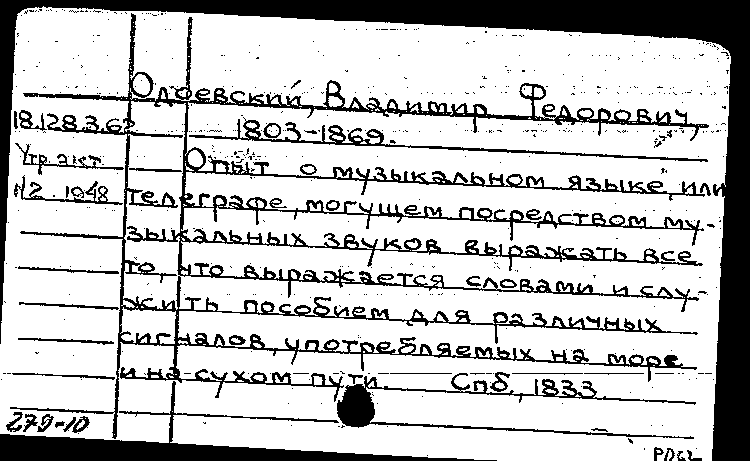 Одоевский, Владимир Федорович,
18.128.3.62 1803-1869.
Утр. акт Опыт о музыкальном языке, или
№2 1948 телеграфе, могущем посредством му-
зыкальных звуков выражать все
то, что выражается словами и слу-
жить пособием для различных
сигналов, употребляемых на море
и на сухом пути. Спб., 1833.
279-10